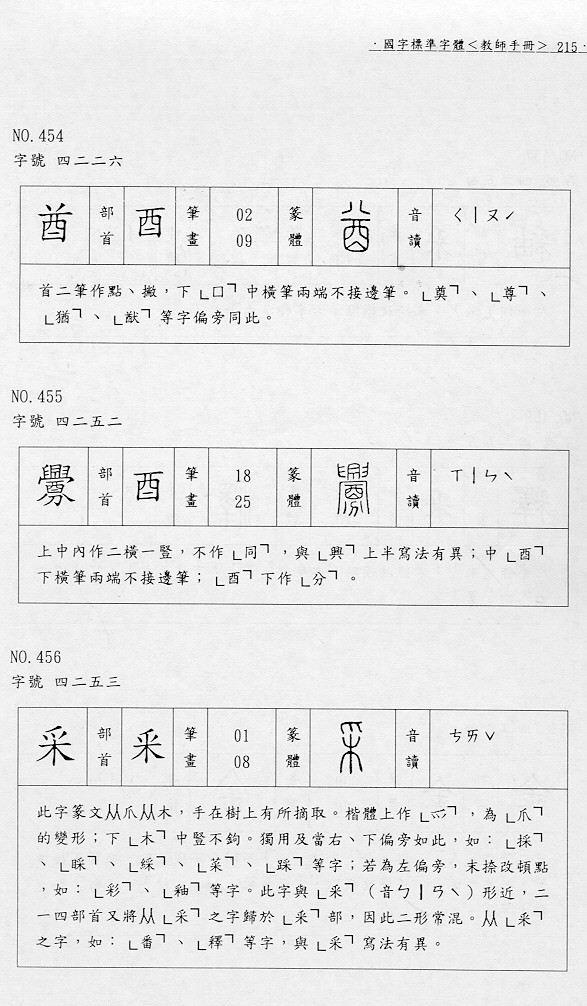 ．國字標準字體＜教師手冊＞ 215．
NO.454
字號 四二二六
酋 部首 酉 筆畫 02 09 篆體 音讀 ㄑㄧㄡˊ
首二筆作點、撇，下「口」中橫筆兩端不接邊筆。「奠」、「尊」、
「猶」、「猷」等字偏旁同此。
NO.455
字號 四二五二
釁 部首 酉 筆畫 18 25 篆體 音讀 ㄒㄧㄣˋ
上中內作二橫一豎，不作「同」，與「興」上半寫法有異；中「酉」
下橫筆兩端不接邊筆；「酉」下作「分」。
NO.456
字號 四二五三
采 部首 釆 筆畫 01 08 篆體 音讀 ㄘㄞˇ
此字篆文从爪从木，手在樹上有所摘取。楷體上作「爫」，為「爪」
的變形；下「木」中豎不鉤。獨用及當右、下偏旁如此，如：「採」
、「睬」、「綵」、「菜」、「踩」等字；若為左偏旁，末捺改頓點
，如：「彩」、「釉」等字。此字與「釆」（音ㄅㄧㄢˋ）形近，二
一四部首又將从「采」之字歸於「釆」部，因此二形常混。从「釆」
之字，如：「番」、「釋」等字，與「采」寫法有異。